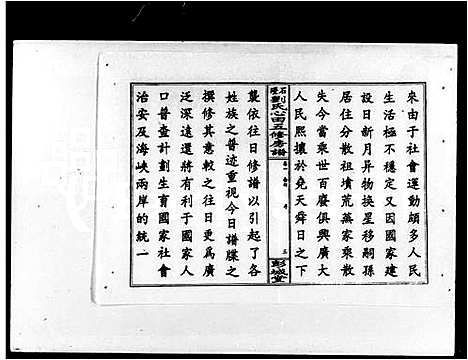 來由于社會運動頗多人民
生活極不穩定又因國家建
設日新月异物換星移嗣孫
居住分散祖墳荒蕪家乘散
失今當乘世百廢俱興廣大
人民熙攘於堯天舜日之下
石塘劉氏心田五修房譜
三
彭城堂
襲依往日修譜以引起了各
姓族之普迹重視今日譜牒之
撰修其意較之往日更為廣
泛深遠還將有利于國家人
口普查計劃生育國家社會
治安及海峽兩岸的統一